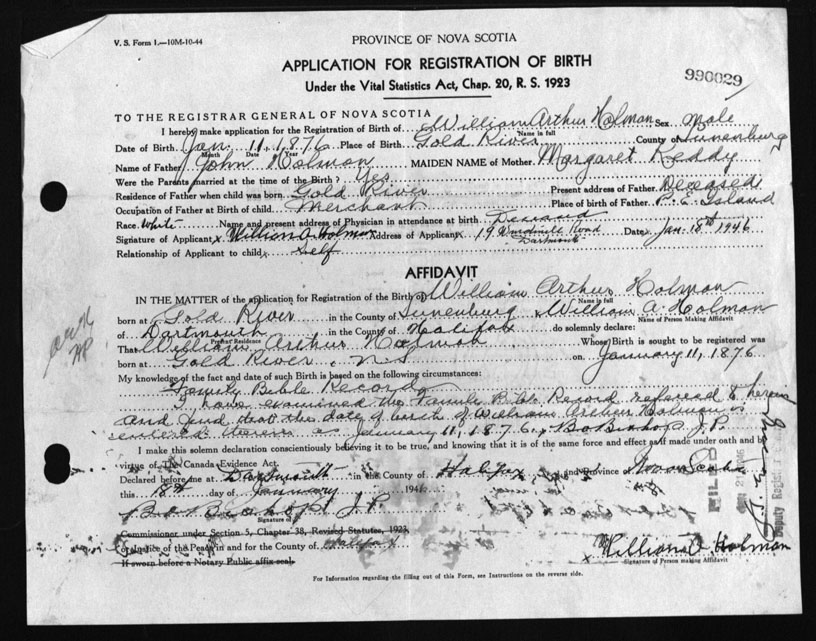 V. S. Form 1.—10M-10-44
PROVINCE OF NOVA SCOTIA
APPLICATION FOR REGISTRATION OF BIRTH
Under the Vital Statistics Act, Chap. 20, R. S. 1923
990029
TO THE REGISTRAR GENERAL OF NOVA SCOTIA
I hereby make application for the Registration of Birth of William Arthur Holman Sex Male
Name in full
Date of Birth Jan. 11, 1876 Place of Birth Gold River County of Lunenburg
Month Date Year
Name of Father John Holman MAIDEN NAME of Mother Margaret Reddy
Were the Parents married at the time of the Birth? Yes
Residence of Father when child was born Gold River Present address of Father Deceased
Occupation of Father at Birth of child Merchant Place of birth of Father P. E. Island
Race White Name and present address of Physician in attendance at birth
Signature of Applicant x William A Holman Address of Applicant x 19 Windmill Road Dartmouth Date x Jan. 18th 1946
Relationship of Applicant to child x Self
AFFIDAVIT
IN THE MATTER of the application for Registration of the Birth of William Arthur Holman
Name in full
born at Gold River in the County of Lunenburg William A Holman
Name of Person Making Affidavit
of Dartmouth in the County of Halifax do solemnly declare:
Present Residence
That William Arthur Holman Whose Birth is sought to be registered was
born at Gold River, N.S. on January 11, 1876
My knowledge of the fact and date of such Birth is based on the following circumstances:
Family Bible Record
I have examined the Family Bible Record referred to herein
and find that the date of birth of William Arthur Holman is
entered therein as January 11, 1876. B O Bishop J.P.
I make this solemn declaration conscientiously believing it to be true, and knowing that it is of the same force and effect as if made under oath and by
virtue of The Canada Evidence Act.
Declared before me at Dartmouth in the County of Halifax and Province Nova Scotia
this 18th day of January 1946
B O Bishop J.P.
Signature of
Commissioner under Section 5, Chapter 38, Revised Statutes, 1923
or Justice of the Peace in and for the County of Halifax
If sworn before a Notary Public affix seal.
x William A. Holman
Signature of Person making Affidavit
For Information regarding the filling out of this Form, see Instructions on the reverse side.
FILED
Deputy Registrar